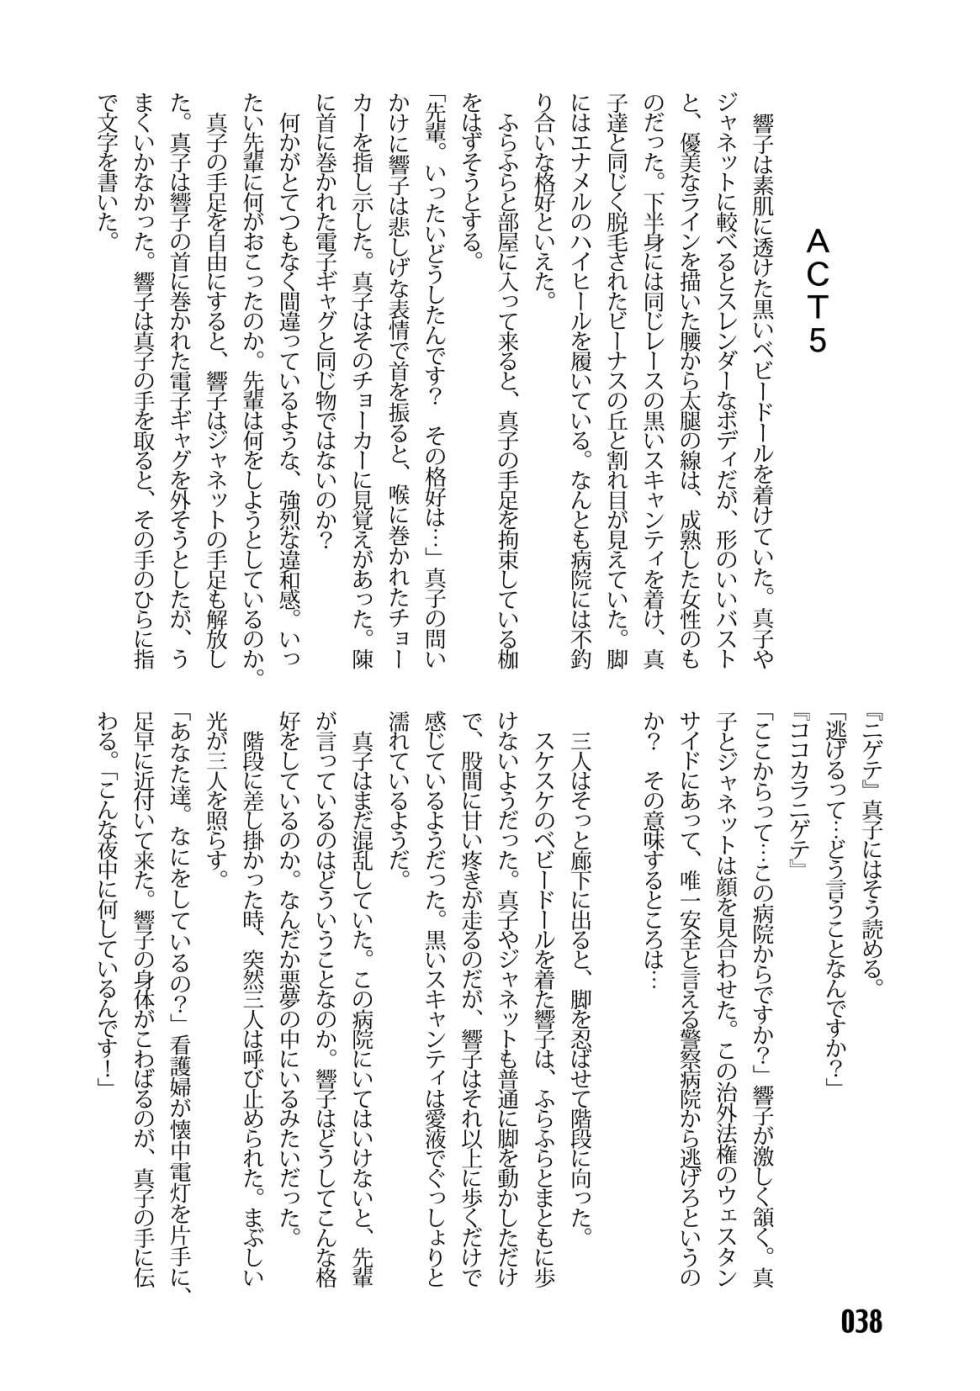 ACT5
響子は素肌に透けた黒いベビードールを着けていた。真子や
ジャネットに較べるとスレンダーなボディだが、形のいいバスト
と、優美なラインを描いた腰から太腿の線は、成熟した女性のも
のだった。下半身には同じレースの黒いスキャンティを着け、真
子達と同じく脱毛されたビーナスの丘と割れ目が見えていた。脚
にはエナメルのハイヒールを履いている。なんとも病院には不釣
り合いな格好といえた。
ふらふらと部屋に入って来ると、真子の手足を拘束している枷
をはずそうとする。
「先輩。いったいどうしたんです？　その格好は…」真子の問い
かけに響子は悲しげな表情で首を振ると、喉に巻かれたチョー
カーを指し示した。真子はそのチョーカーに見覚えがあった。陳
に首に巻かれた電子ギャグと同じ物ではないのか？
何かがとてつもなく間違っているような、強烈な違和感。いっ
たい先輩に何がおこったのか。先輩は何をしようとしているのか。
真子の手足を自由にすると、響子はジャネットの手足も解放し
た。真子は響子の首に巻かれた電子ギャグを外そうとしたが、う
まくいかなかった。響子は真子の手を取ると、その手のひらに指
で文字を書いた。
『ニゲテ』真子にはそう読める。
「逃げるって…どう言うことなんですか？」
『ココカラニゲテ』
「ここからって…この病院からですか？」響子が激しく頷く。真
子とジャネットは顔を見合わせた。この治外法権のウェスタン
サイドにあって、唯一安全と言える警察病院から逃げろというの
か？　その意味するところは…
三人はそっと廊下に出ると、脚を忍ばせて階段に向った。
スケスケのベビードールを着た響子は、ふらふらとまともに歩
けないようだった。真子やジャネットも普通に脚を動かしただけ
で、股間に甘い疼きが走るのだが、響子はそれ以上に歩くだけで
感じているようだった。黒いスキャンティは愛液でぐっしょりと
濡れているようだ。
真子はまだ混乱していた。この病院にいてはいけないと、先輩
が言っているのはどういうことなのか。響子はどうしてこんな格
好をしているのか。なんだか悪夢の中にいるみたいだった。
階段に差し掛かった時、突然三人は呼び止められた。まぶしい
光が三人を照らす。
「あなた達。なにをしているの？」看護婦が懐中電灯を片手に、
足早に近付いて来た。響子の身体がこわばるのが、真子の手に伝
わる。「こんな夜中に何しているんです！」
038